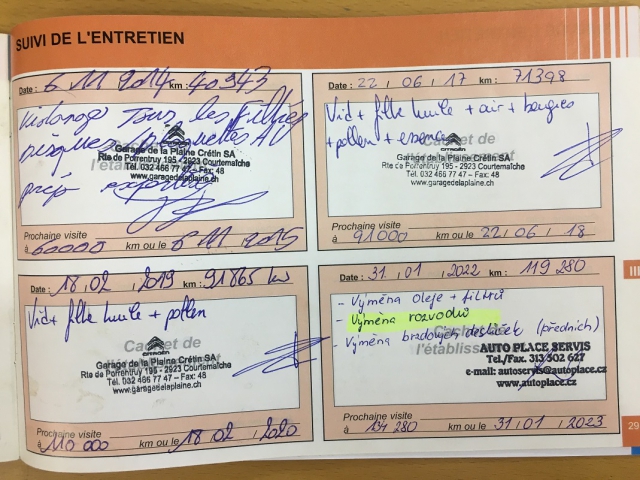 SUIVI DE L'ENTRETIEN
Date : 6 11 2014 km : 40943
Vidange Tous les Filtres
Disques plaquettes AV
CITROËN
Garage de la Plaine Crétin SA
Rte de Porrentruy 195 - 2923 Courtemaîche
Tél. 032 466 77 47 – Fax: 48
www.garagedelaplaine.ch
Prochaine visite
à 60000 km ou le 6 11 2015
Date : 22 06 17 km : 71398
Vid + filtre huile + air + bougies
+ pollen + essence
Cachet de
CITROËN
Garage de la Plaine Crétin SA
Rte de Porrentruy 195 - 2923 Courtemaîche
Tél. 032 466 77 47 – Fax: 48
www.garagedelaplaine.ch
Prochaine visite
à 91000 km ou le 22 06 18
Date : 18 02 2019 km : 91865 km
Vid + filtre huile + pollen
Cachet de
CITROËN
Garage de la Plaine Crétin SA
Rte de Porrentruy 195 - 2923 Courtemaîche
Tél. 032 466 77 47 – Fax: 48
www.garagedelaplaine.ch
Prochaine visite
à 110 000 km ou le 18 02 2020
Date : 31 01 2022 km : 119 280
- Výměna oleje + filtrů
- Výměna rozvodů
- Výměna brzdových destiček (předních)
Cachet de
l'établiss
AUTO PLACE SERVIS
Tel./Fax. 313 502 627
e-mail: autoservis@autoplace.cz
www.autoplace.cz
Prochaine visite
à 134 280 km ou le 31 01 2023
29